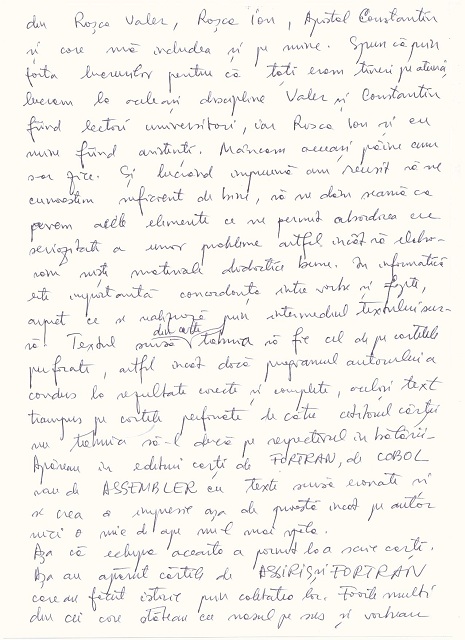 din Roșca Valer, Roșca Ion, Apostol Constantin
și care mă includea și pe mine. Spun că prin
forța lucrurilor pentru că toți eram tineri pe atunci
lucram la aceleași discipline Valer și Constantin
fiind lectori universitari, iar Roșca Ion și cu
mine fiind asistenți. Mâncam aceeași pâine cum
s-ar zice. Și lucrând împreună am reușit să ne
cunoaștem suficient de bine, să ne dăm seama că
avem acele elemente ce ne permit abordarea cu
seriozitate a unor probleme astfel încât să elabo-
răm niște materiale didactice bune. În informatică
este importantă concordanța între vorbe și fapte,
aspect ce se realizează prin intermediul textului sur-
să. Textul sursă din carte trebuia să fie cel de pe cartelele
perforate, astfel încât dacă programul autorului a
condus la rezultate corecte și complete, același text
transpus pe cartele perforate de către cititorul cărții
nu trebuia să-l ducă pe respectivul în bălării.
Apăreau în edituri cărți de FORTRAN, de COBOL
sau de ASSEMBLER cu texte sursă eronate și
se crea o impresie așa de proastă încât pe autor
nici o mie de ape nu-l mai spăla.
Așa că echipa aceasta a pornit la a scrie cărți.
Așa au apărut cărțile de ASSIRIS și FORTRAN
care au făcut istorie prin calitatea lor. Foarte mulți
din cei care stăteau cu nasul pe sus și vorbeau